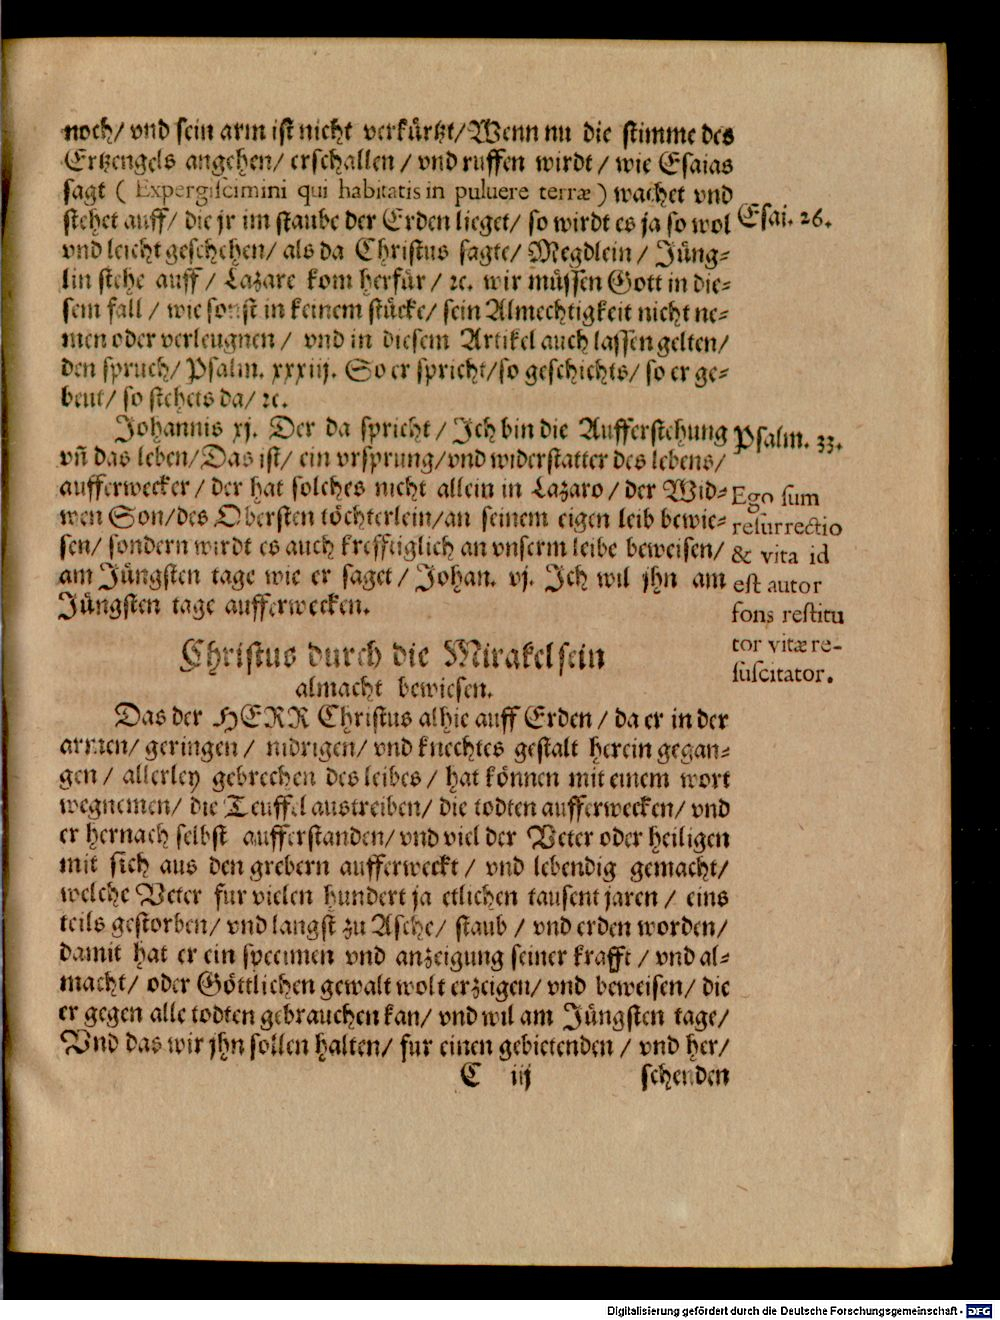 noch/ vnd sein arm ist nicht verkürtzt/ Wenn nu die stimme des
Ertzengels angehen/ erschallen / vnd ruffen wirdt / wie Esaias
sagt ( Expergiscimini qui habitatis in puluere terræ ) wachet vnd
stehet auff/ die jr im staube der Erden lieget/ so wirdt es ja so wol
Esai. 26.
vnd leicht geschehen/ als da Christus sagte/ Megdlein / Jüng-
lin stehe auff / Lazare kom herfür / ꝛc. wir müssen Gott in die-
sem fall / wie sonst in keinem stücke/ sein Almechtigkeit nicht ne-
men oder verleugnen / vnd in diesem Artikel auch lassen gelten/
den spruch/ Psalm. xxxiij. So er spricht/ so geschichts/ so er ge-
beut/ so stehets da/ ꝛc.
Johannis xj. Der da spricht / Ich bin die Aufferstehung
Psalm. 33.
vñ das leben/ Das ist/ ein vrsprung/ vnd widerstatter des lebens/
aufferwecker / der hat solches nicht allein in Lazaro / der Wid-
wen Son/ des Obersten töchterlein/ an seinem eigen leib bewie-
sen/ sondern wirdt es auch krefftiglich an vnserm leibe beweisen/
am Jüngsten tage wie er saget / Johan. vj. Ich wil jhn am
Jüngsten tage aufferwecken.
Ego sum
resurrectio
& vita id
est autor
fons restitu
tor vitæ re-
suscitator.
Christus durch die Mirakel sein
almacht bewiesen.
Das der HERR Christus alhie auff Erden / da er in der
armen/ geringen / nidrigen/ vnd knechtes gestalt herein gegan-
gen / allerley gebrechen des leibes / hat können mit einem wort
wegnemen/ die Teuffel austreiben/ die todten aufferwecken/ vnd
er hernach selbst aufferstanden/ vnd viel der Veter oder heiligen
mit sich aus den grebern aufferweckt / vnd lebendig gemacht/
welche Veter fur vielen hundert ja etlichen tausent jaren / eins
teils gestorben/ vnd langst zu Asche/ staub / vnd erden worden/
damit hat er ein specimen vnd anzeigung seiner krafft / vnd al-
macht/ oder Göttlichen gewalt wolt erzeigen/ vnd beweisen/ die
er gegen alle todten gebrauchen kan/ vnd wil am Jüngsten tage/
Vnd das wir jhn sollen halten/ fur einen gebietenden / vnd her/
C iij schenden
Digitalisierung gefördert durch die Deutsche Forschungsgemeinschaft - DFG